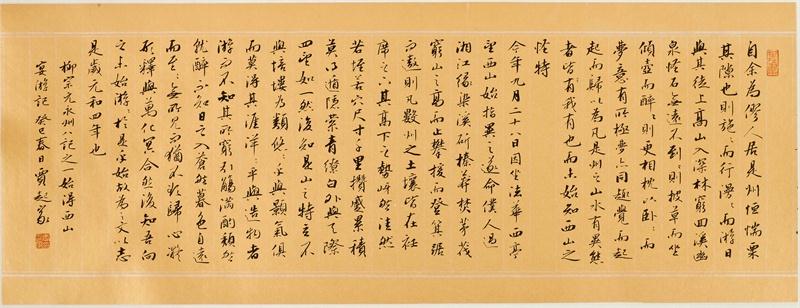 自余為僇人居是州恒惴栗
其隙也則施〻而行漫〻而游日
與其徒上高山入深林窮回溪幽
泉怪石無遠不到〻則披草而坐
傾壺而醉〻則更相枕以卧〻而
夢意有所極夢亦同趣覺而起
起而歸以為凡是州之山水有異態
者皆我有也而未始知西山之
怪特
今年九月二十八日因坐法華西亭
望西山始指異之遂命僕人過
湘江緣染溪斫榛莽焚茅茷
窮山之高而止攀援而登箕踞
而遨則凡數州之土壤皆在衽
席之下其高下之勢岈然洼然
若垤若穴尺寸千里攢蹙累積
莫得遁隱縈青繚白外與天際
四望如一然後知是山之特立不
與培塿為類悠〻乎與顥氣俱
而莫得其涯洋〻乎與造物者
游而不知其所窮引觴滿酌頹然
就醉不知日之入蒼然暮色自遠
而至〻無所見而猶不欲歸心凝
形釋與萬化冥合然後知吾向
之未始游〻於是乎始故為之文以志
是歲元和四年也
柳宗元永州八記之一始得西山
宴游記 癸巳春日賈起家